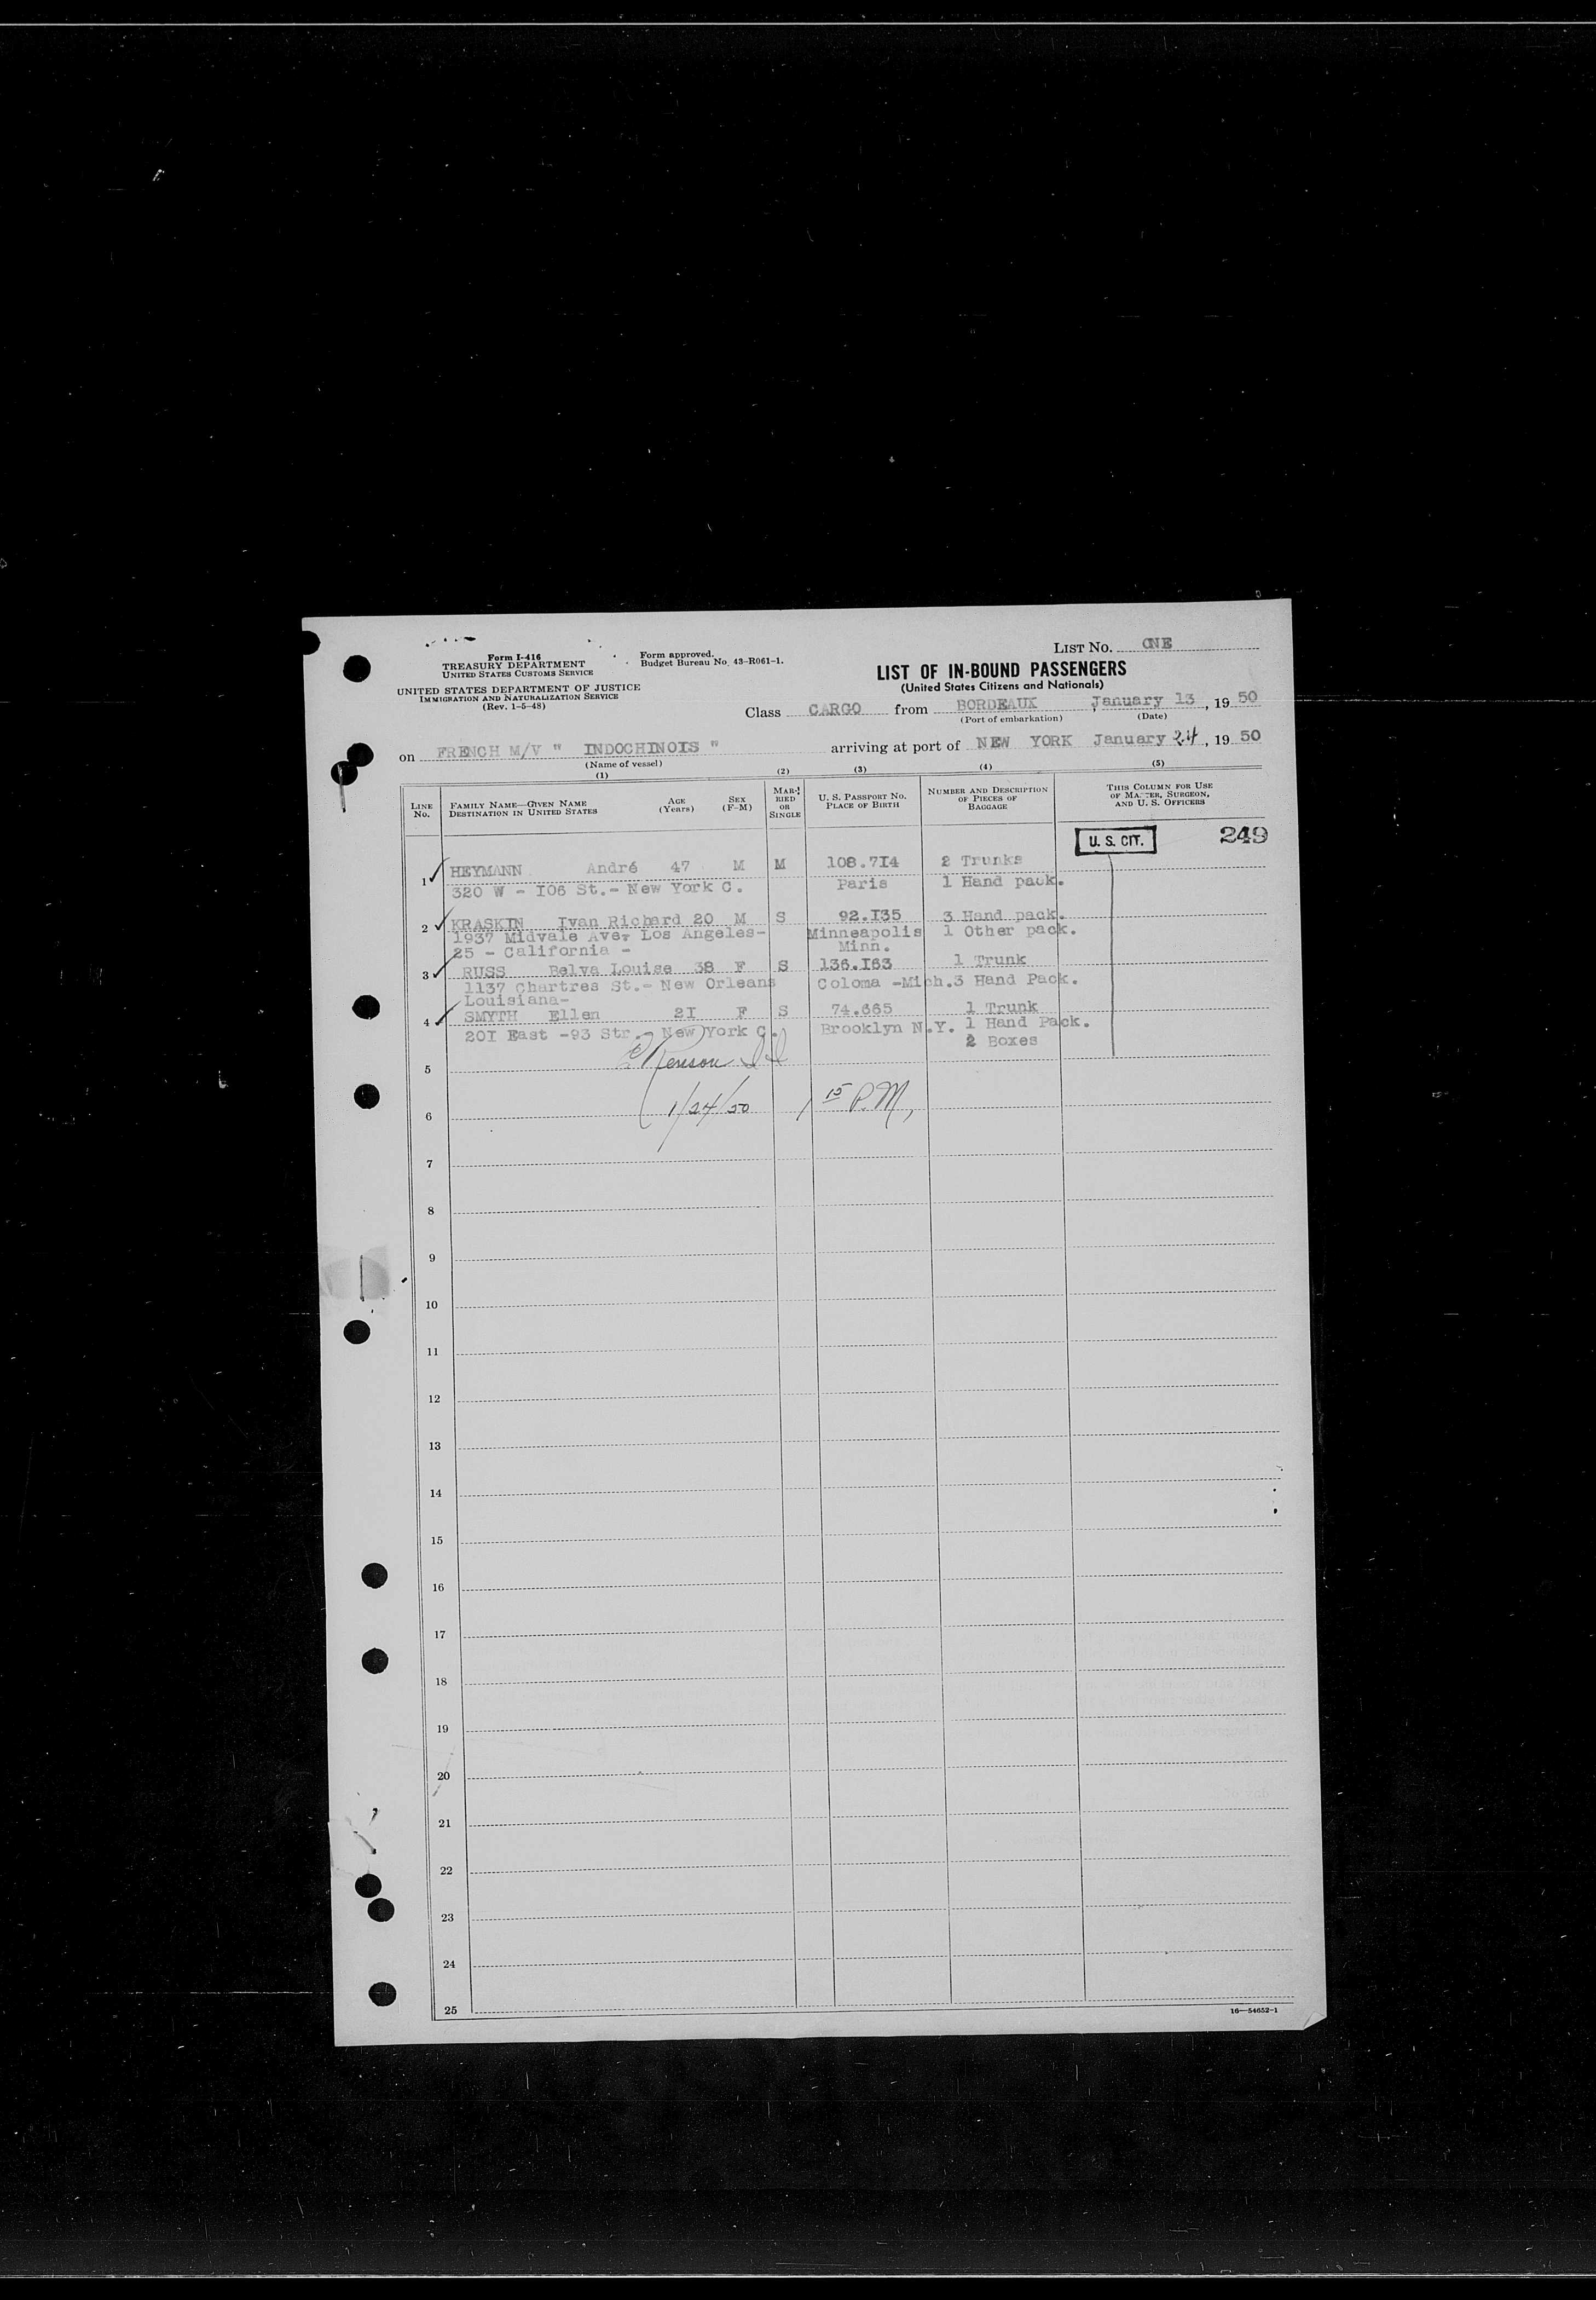 Form I-416
TREASURY DEPARTMENT
UNITED STATES CUSTOMS SERVICE
UNITED STATES DEPARTMENT OF JUSTICE
IMMIGRATION AND NATURALIZATION SERVICE
(Rev. 1-5-48)
Form approved.
Budget Bureau No. 43-R061-1.
LIST NO. ONE
LIST OF IN-BOUND PASSENGERS
(United States Citizens and Nationals)
Class CARGO from BORDEAUX, January 13, 19 50
(Port of embarkation) (Date)
on FRENCH M/V " INDOCHINOIS " arriving at port of NEW YORK January 24, 19 50
(Name of vessel)
(1) (2) (3) (4) (5)
LINE NO.
FAMILY NAME—GIVEN NAME AGE (Years) SEX (F-M)
DESTINATION IN UNITED STATES
MARRIED OR SINGLE
U. S. PASSPORT NO.
PLACE OF BIRTH
NUMBER AND DESCRIPTION OF PIECES OF BAGGAGE
THIS COLUMN FOR USE OF MASTER, SURGEON, AND U. S. OFFICERS
U. S. CIT. 249
1 HEYMANN André 47 M M 108.7I4 2 Trunks
320 W - I06 St.- New York C. Paris 1 Hand pack.
2 KRASKIN Ivan Richard 20 M S 92.I35 3 Hand pack.
1937 Midvale Ave- Los Angeles- Minneapolis 1 Other pack.
25 - California - Minn.
3 RUSS Belva Louise 38 F S 136.I63 1 Trunk
1137 Chartres St.- New Orleans Coloma -Mich. 3 Hand Pack.
Louisiana-
4 SMYTH Ellen 2I F S 74.665 1 Trunk
20I East -93 Str.- New York C. Brooklyn N.Y. 1 Hand Pack.
2 Boxes
5
6 1/24/50 1 15 P.M,
7
8
9
10
11
12
13
14
15
16
17
18
19
20
21
22
23
24
25
16—54652-1